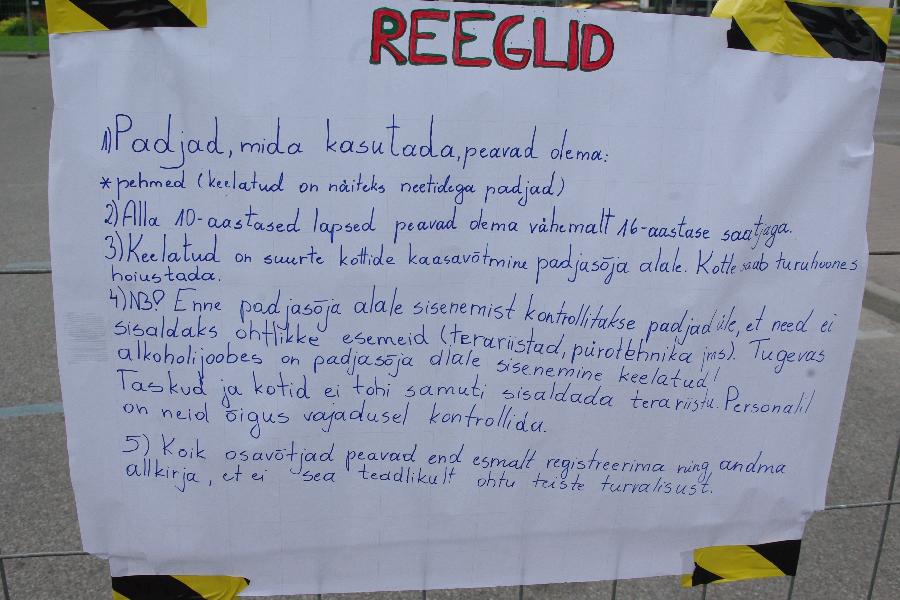 REEGLID
1) Padjad, mida kasutada, peavad olema:
* pehmed (keelatud on näiteks neetidega padjad)
2) Alla 10-aastased lapsed peavad olema vähemalt 16-aastase saatjaga.
3) Keelatud on suurte kottide kaasavõtmine padjasõja alale. Kotte saab turuhoones
hoiustada.
4) NB! Enne padjasõja alale sisenemist kontrollitakse padjad üle, et need ei
sisaldaks ohtlikke esemeid (terariistad, pürotehnika jms). Tugevas
alkoholijoobes on padjasõja alale sisenemine keelatud!
Taskud ja kotid ei tohi samuti sisaldada terariistu. Personalil
on neid õigus vajadusel kontrollida.
5) Koik osavõtjad peavad end esmalt registreerima ning andma
allkirja, et ei sea teadlikult ohtu teiste turvalisust.